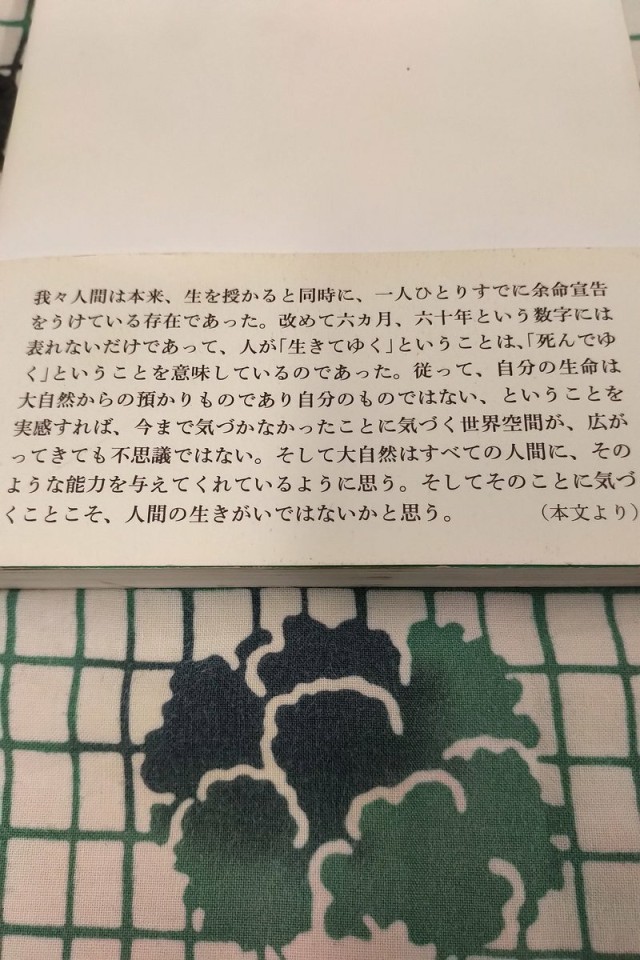 我々人間は本来、生を授かると同時に、一人ひとりすでに余命宣告
をうけている存在であった。改めて六ヵ月、六十年という数字には
表れないだけであって、人が「生きてゆく」ということは、「死んでゆ
く」ということを意味しているのであった。従って、自分の生命は
大自然からの預かりものであり自分のものではない、ということを
実感すれば、今まで気づかなかったことに気づく世界空間が、広が
ってきても不思議ではない。そして大自然はすべての人間に、その
ような能力を与えてくれているように思う。そしてそのことに気づ
くことこそ、人間の生きがいではないかと思う。　　　（本文より）